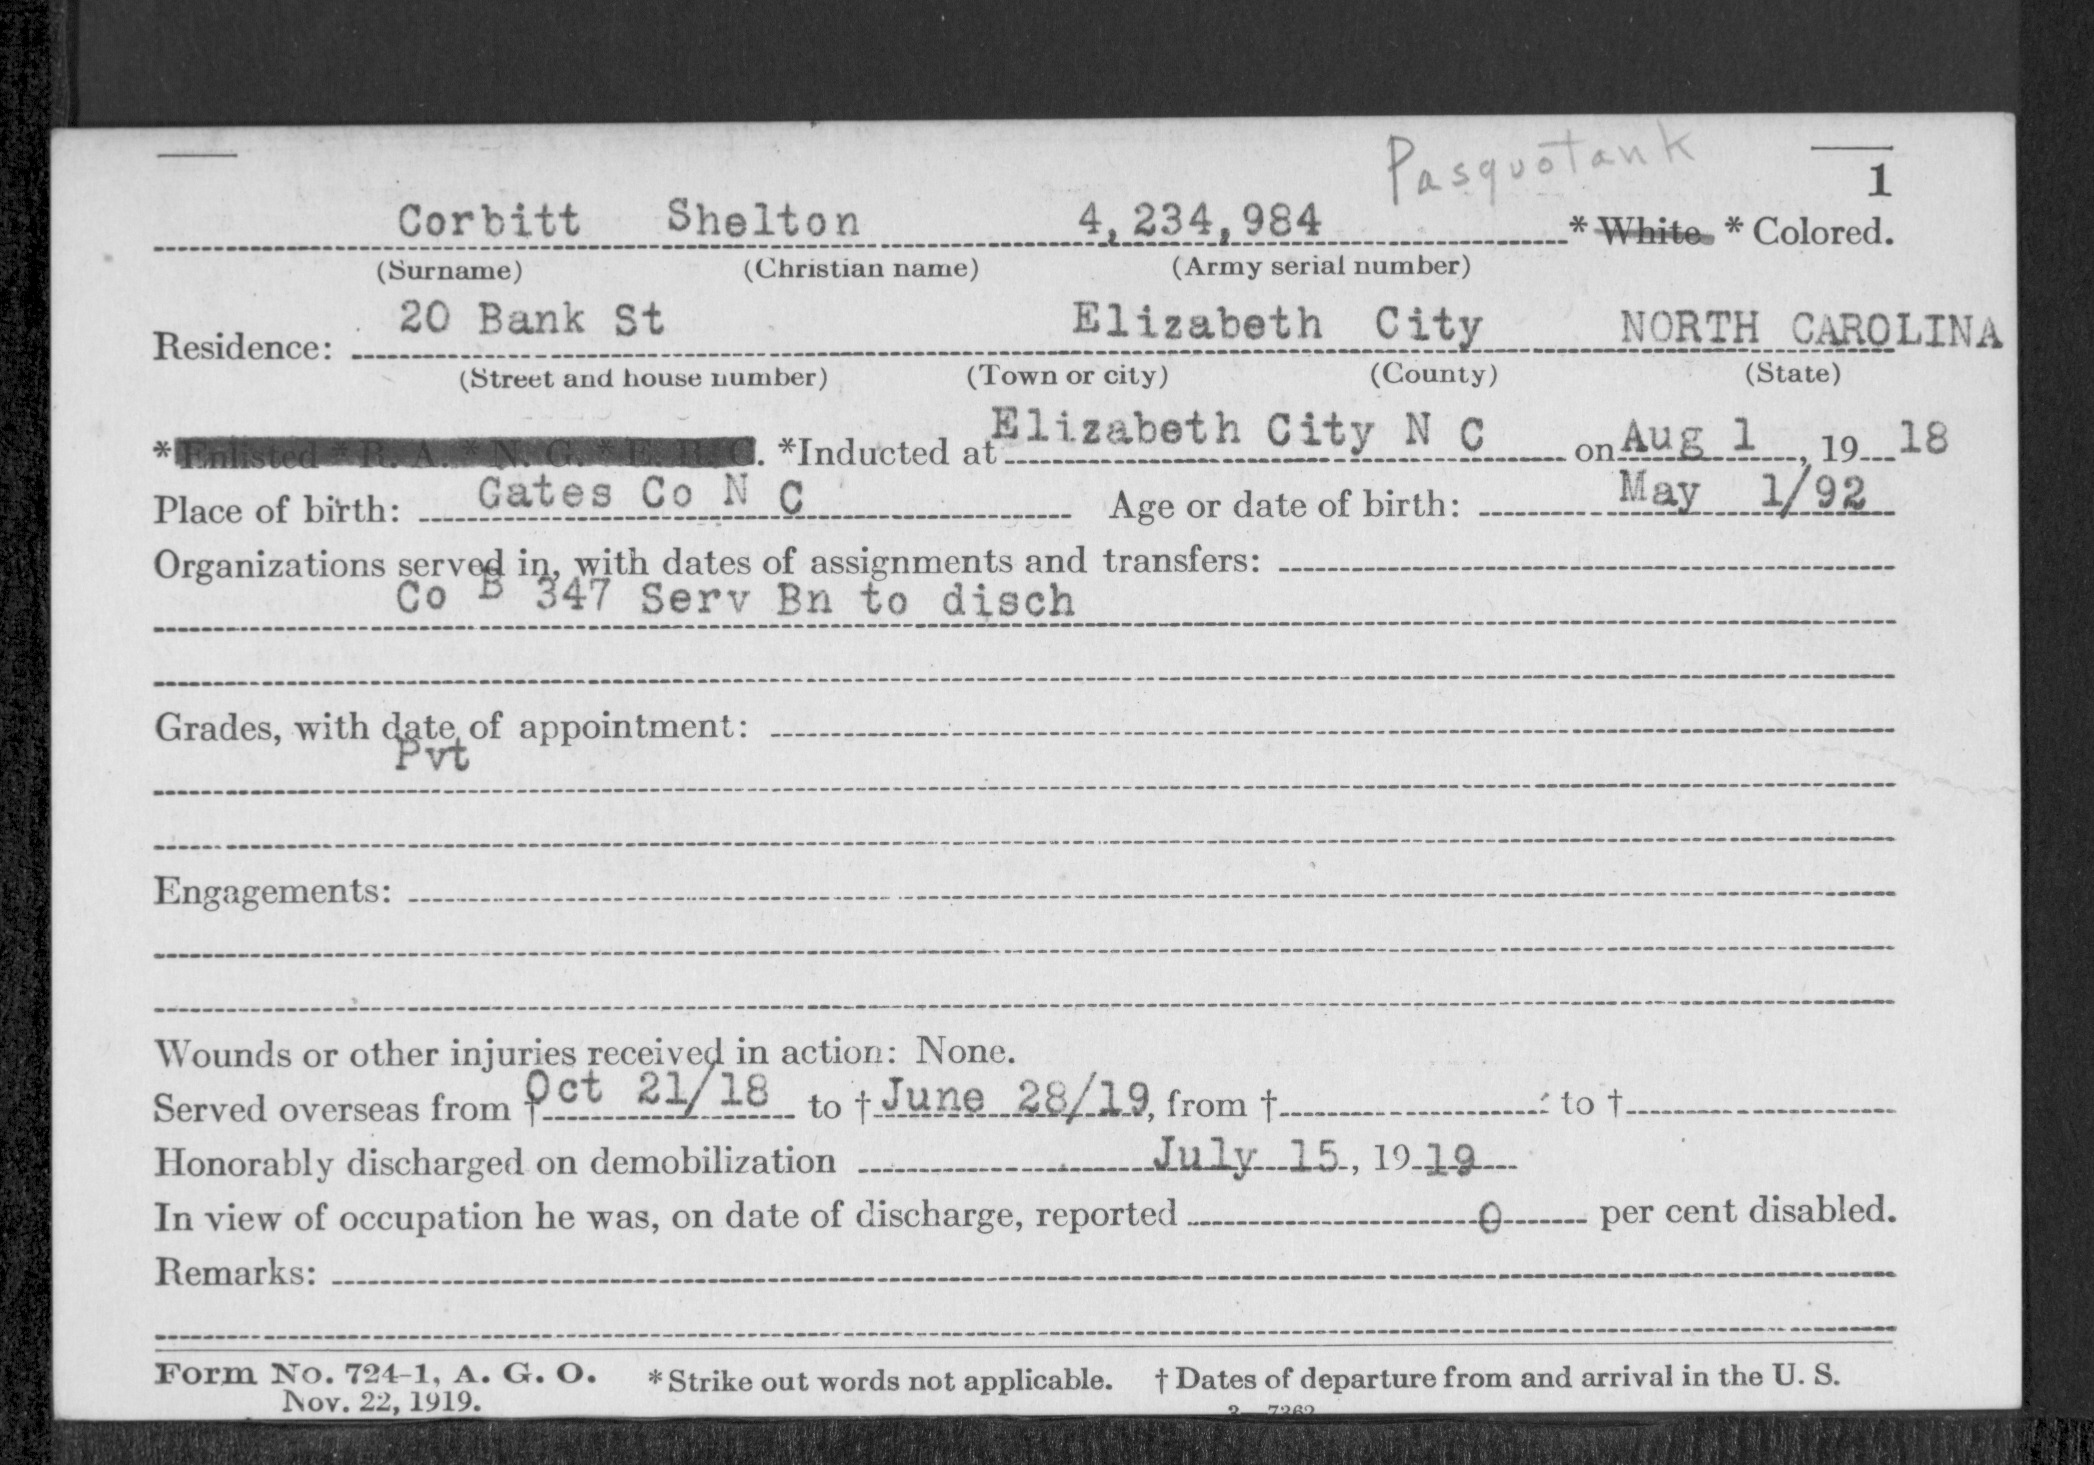 Pasquotank
1
Corbitt Shelton 4,234,984 * White * Colored.
(Surname) (Christian name) (Army serial number)
20 Bank St Elizabeth City NORTH CAROLINA
Residence:
(Street and house number) (Town or city) (County) (State)
*Enlisted * R. A. * N. G. * E. R. C. *Inducted at Elizabeth City N C on Aug 1, 19 18
Place of birth: Gates Co N C Age or date of birth: May 1/92
Organizations served in, with dates of assignments and transfers:
Co B 347 Serv Bn to disch
Grades, with date of appointment:
Pvt
Engagements:
Wounds or other injuries received in action: None.
Served overseas from † Oct 21/18 to † June 28/19, from † to †
Honorably discharged on demobilization July 15, 19 19
In view of occupation he was, on date of discharge, reported 0 per cent disabled.
Remarks:
Form No. 724-1, A. G. O. *Strike out words not applicable. † Dates of departure from and arrival in the U. S.
Nov. 22, 1919.